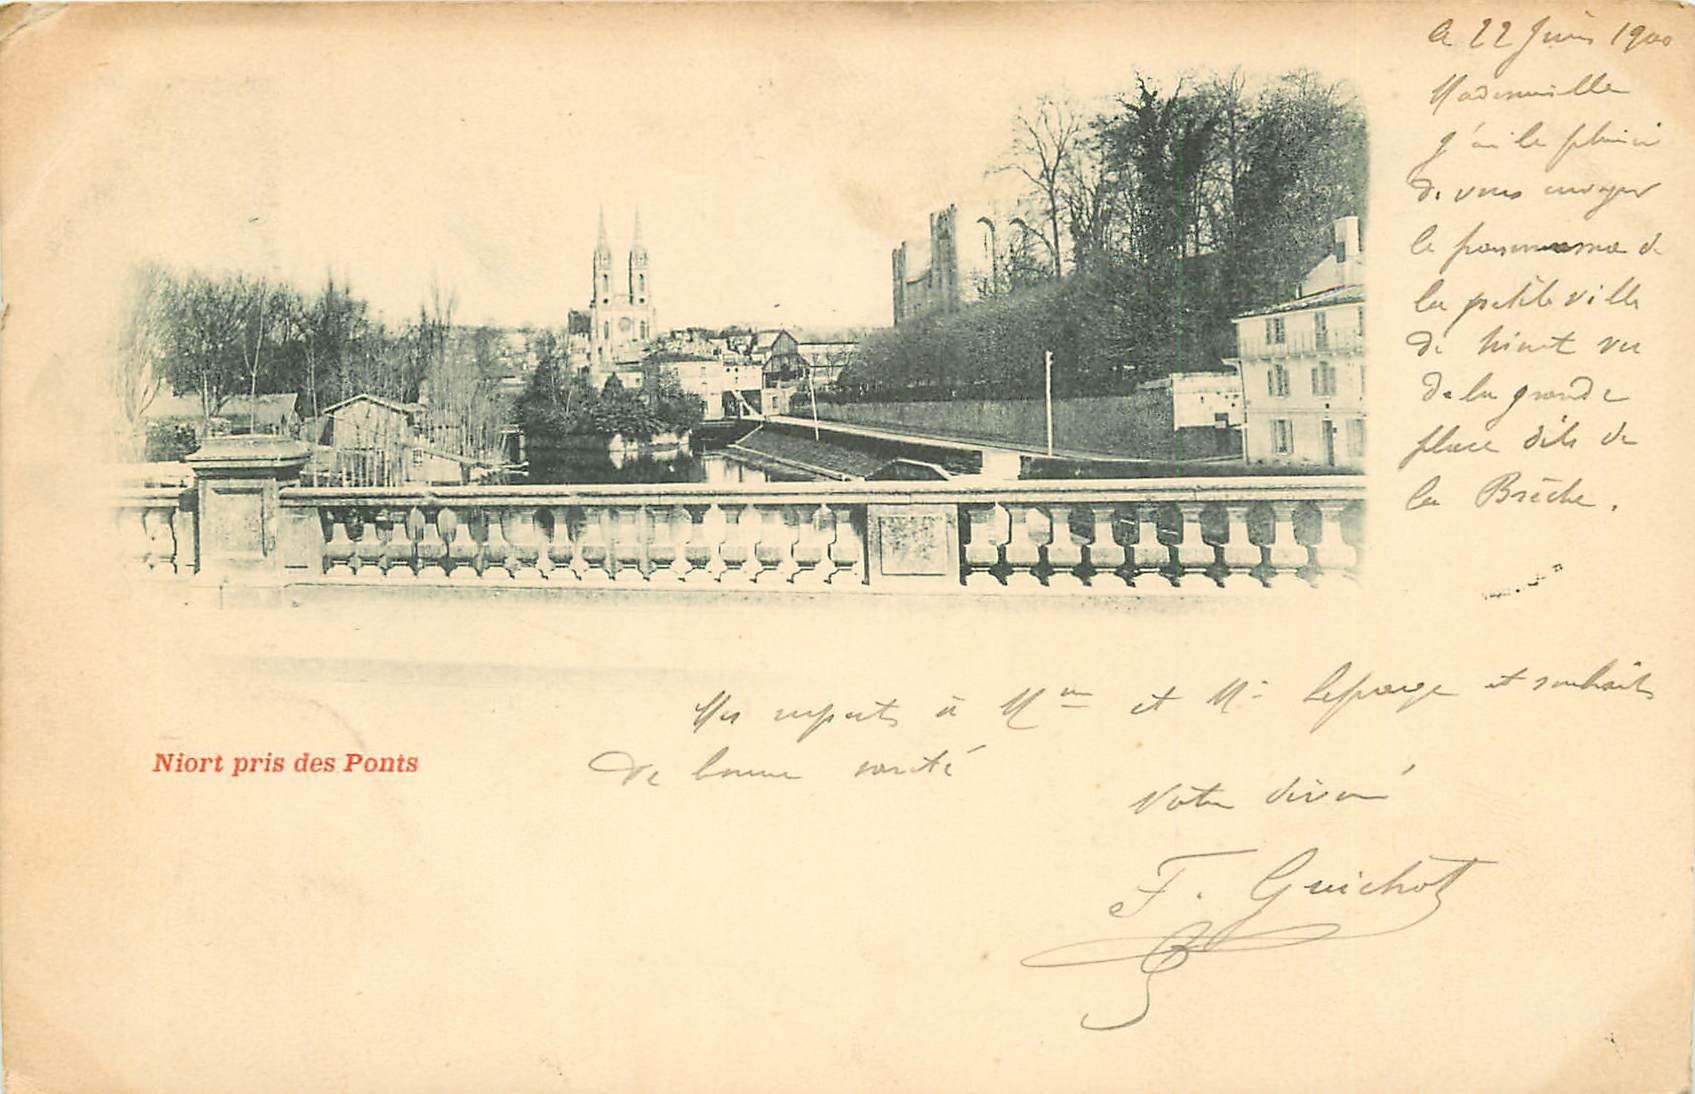 le 22 Juin 1900
Mademoiselle
j'ai le plaisir
de vous envoyer
le panorama de
la petite ville
de Niort vu
de la grande
place dite de
la Brèche.
Mes respects à Mme et Mr Lefrange et souhaits
de bonne santé
Niort pris des Ponts
Votre dévoué
F. Guichot